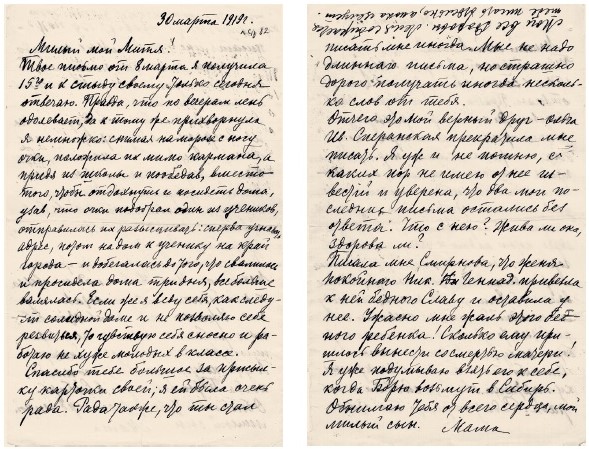 30 марта 1919 г.
Милый мой Митя!
Твое письмо от 8 марта я получила
15го и к стыду своему только сегодня
отвечаю. Правда, что по вечерам лень
одолевает, да к тому же прихворнула
я немножко: снимая на морозе с носу
очки, положила их мимо кармана, а
придя из школы и пообедав, вместо
того, чтобы отдохнуть и посидеть дома,
узнав, что очки подобрал один из учеников,
отправилась их разыскивать: сперва узнавать
адрес, потом на дом к ученику на край
города – и добегалась до того, что свалилась
и просидела дома три дня, все более
валялась. Если же я веду себя, как следу-
ет солидной даме и не позволяю себе
резвиться, то чувствую себя сносно и ра-
ботаю не хуже молодых в классе.
Спасибо тебе большое за присыл-
ку карточки своей; я ей была очень
рада. Рада также, что ты стал
Мой все здоровы.
писать мне иногда. Мне не надо
длинного письма, но страшно
дорого получать иногда несколь-
ко слов от тебя.
Отчего это мой верный друг –
Ив. Сперанская прекратила мне
писать. Я уж и не помню, с
каких пор не имею от нее из-
вестий и уверена, что два мои по-
следних письма остались без
ответа. Что с нею? Жива ли она,
здорова ли?
Писала мне Смирнова, что жена
покойного Ник. Геннад. привезла
к ней бедного Славу и оставила у
нее. Ужасно мне жаль этого бед-
ного ребенка! Сколько ему при-
шлось вынести со смертью матери!
Я уже подумываю взять его к себе,
когда Борю возьмут в Сибирь.
Обнимаю тебя от всего сердца, мой
милый сын. Мама